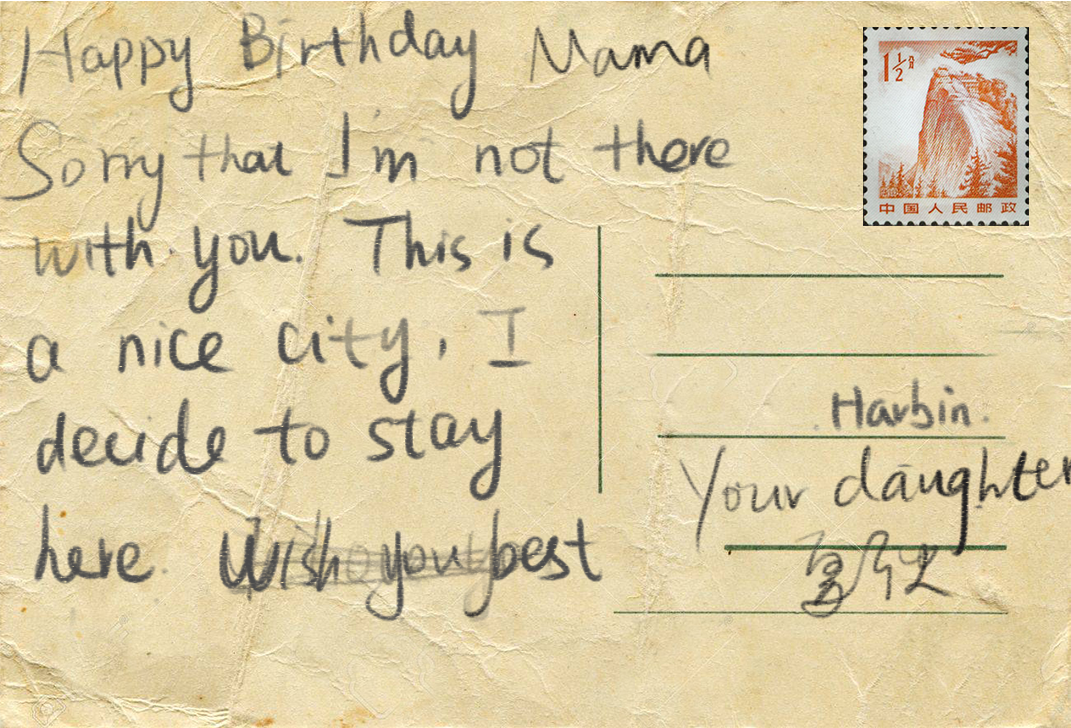 Happy Birthday Mama
Sorry that I'm not there
with you. This is
a nice city, I
decide to stay
here. Wish you best
1½分
中国人民邮政
Harbin.
Your daughter